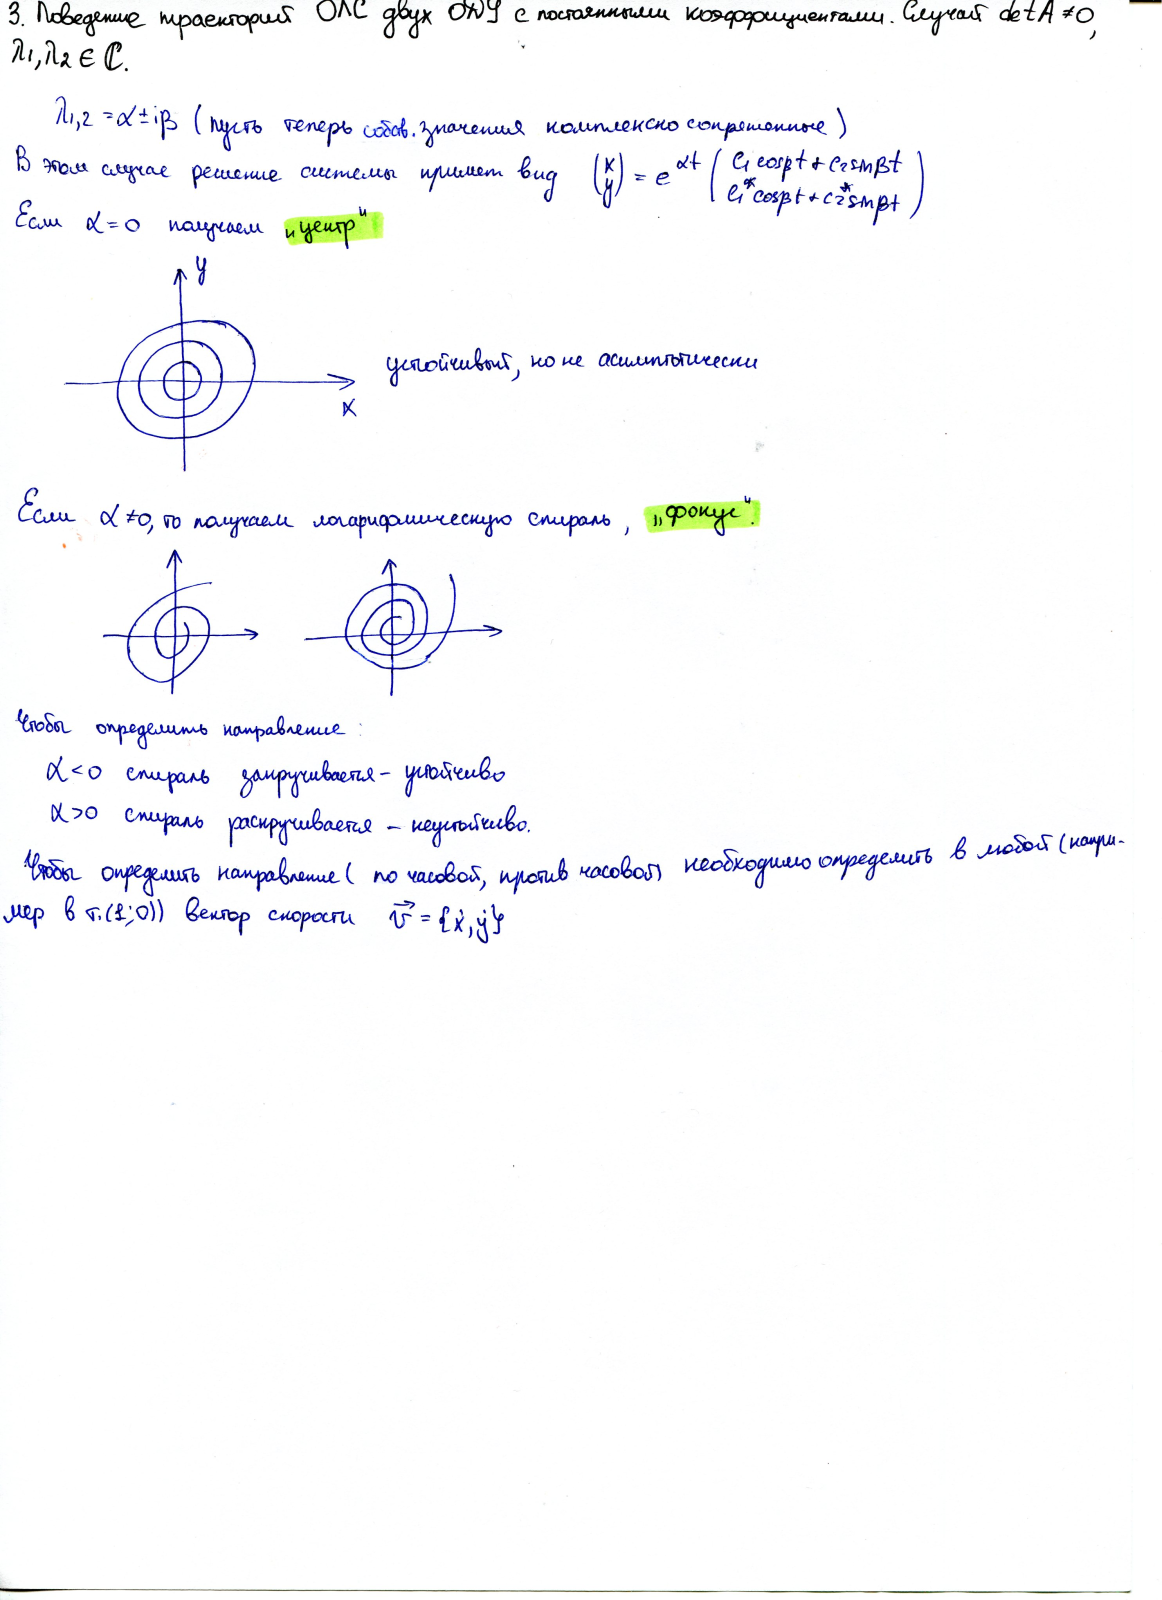 3. Поведение траекторий ОЛС двух ОДУ с постоянными коэффициентами. Случай det A ≠ 0,
λ1, λ2 ∈ ℂ.
λ1,2 = α ± iβ (пусть теперь собств. значения комплексно сопряженные)
В этом случае решение системы примет вид (x y) = e^αt (c1 cosβt + c2 sinβt
c1* cosβt + c2* sinβt)
Если α = 0 получаем „центр"
y
устойчивый, но не асимптотически
x
Если α ≠ 0, то получаем логарифмическую спираль, „фокус".
Чтобы определить направление:
α < 0 спираль закручивается – устойчиво
α > 0 спираль раскручивается – неустойчиво.
Чтобы определить направление (по часовой, против часовой) необходимо определить в любой (напри-
мер в т. (1;0)) вектор скорости v⃗ = {ẋ, ẏ}